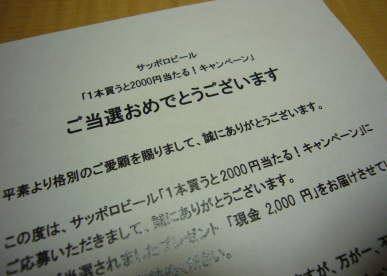 サッポロビール
「1本買うと2000円当たる！キャンペーン」
ご当選おめでとうございます
平素より格別のご愛顧を賜りまして、誠にありがとうございます。
この度は、サッポロビール「1本買うと2000円当たる！キャンペーン」に
ご応募いただきまして、誠にありがとうございます。
当選されましたプレゼント「現金 2,000 円」をお届けさせてい
ください。
すが、万が一